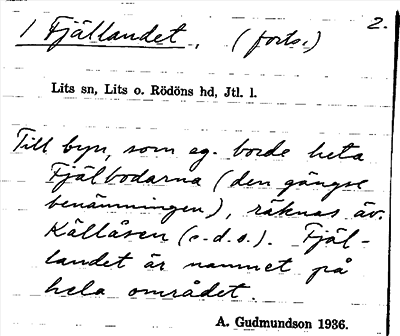 1 Fjällandet, (forts.) 2.
Lits sn, Lits o. Rödöns hd, Jtl. l.
Till byn, som eg. borde heta
Fjälbodarna (den gängse
benämningen), räknas äv.
Källåsen (s.d.o.). Fjäl-
landet är namnet på
hela området.
A. Gudmundson 1936.